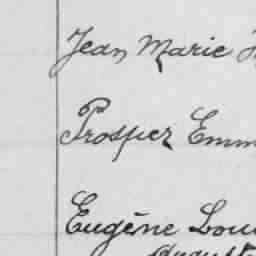 Jean Marie
Prosper Emm
Eugène Lou
August